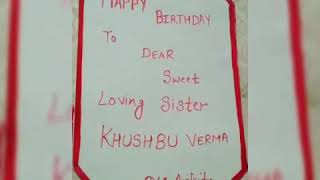 HAPPY
BIRTHDAY
To
DEAR
Sweet
Loving Sister
KHUSHBU VERMA